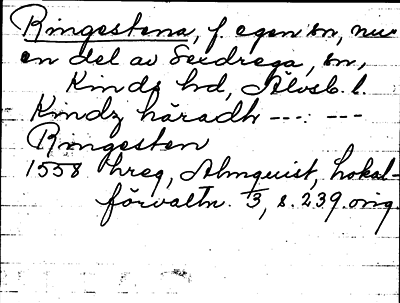 Ringestena, f. egen sn, nu
en del av Sexdrega, sn,
Kinds hd, Älvsb. l.
Kindz häradh ---: ---
Ringesten
1558 hreg, Almquist, Lokal-
förvaltn. 1/3, s. 239. orig.